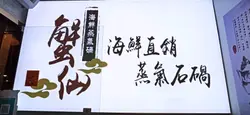 蟹仙
海鮮蒸氣鍋
海鮮直銷
蒸氣石鍋